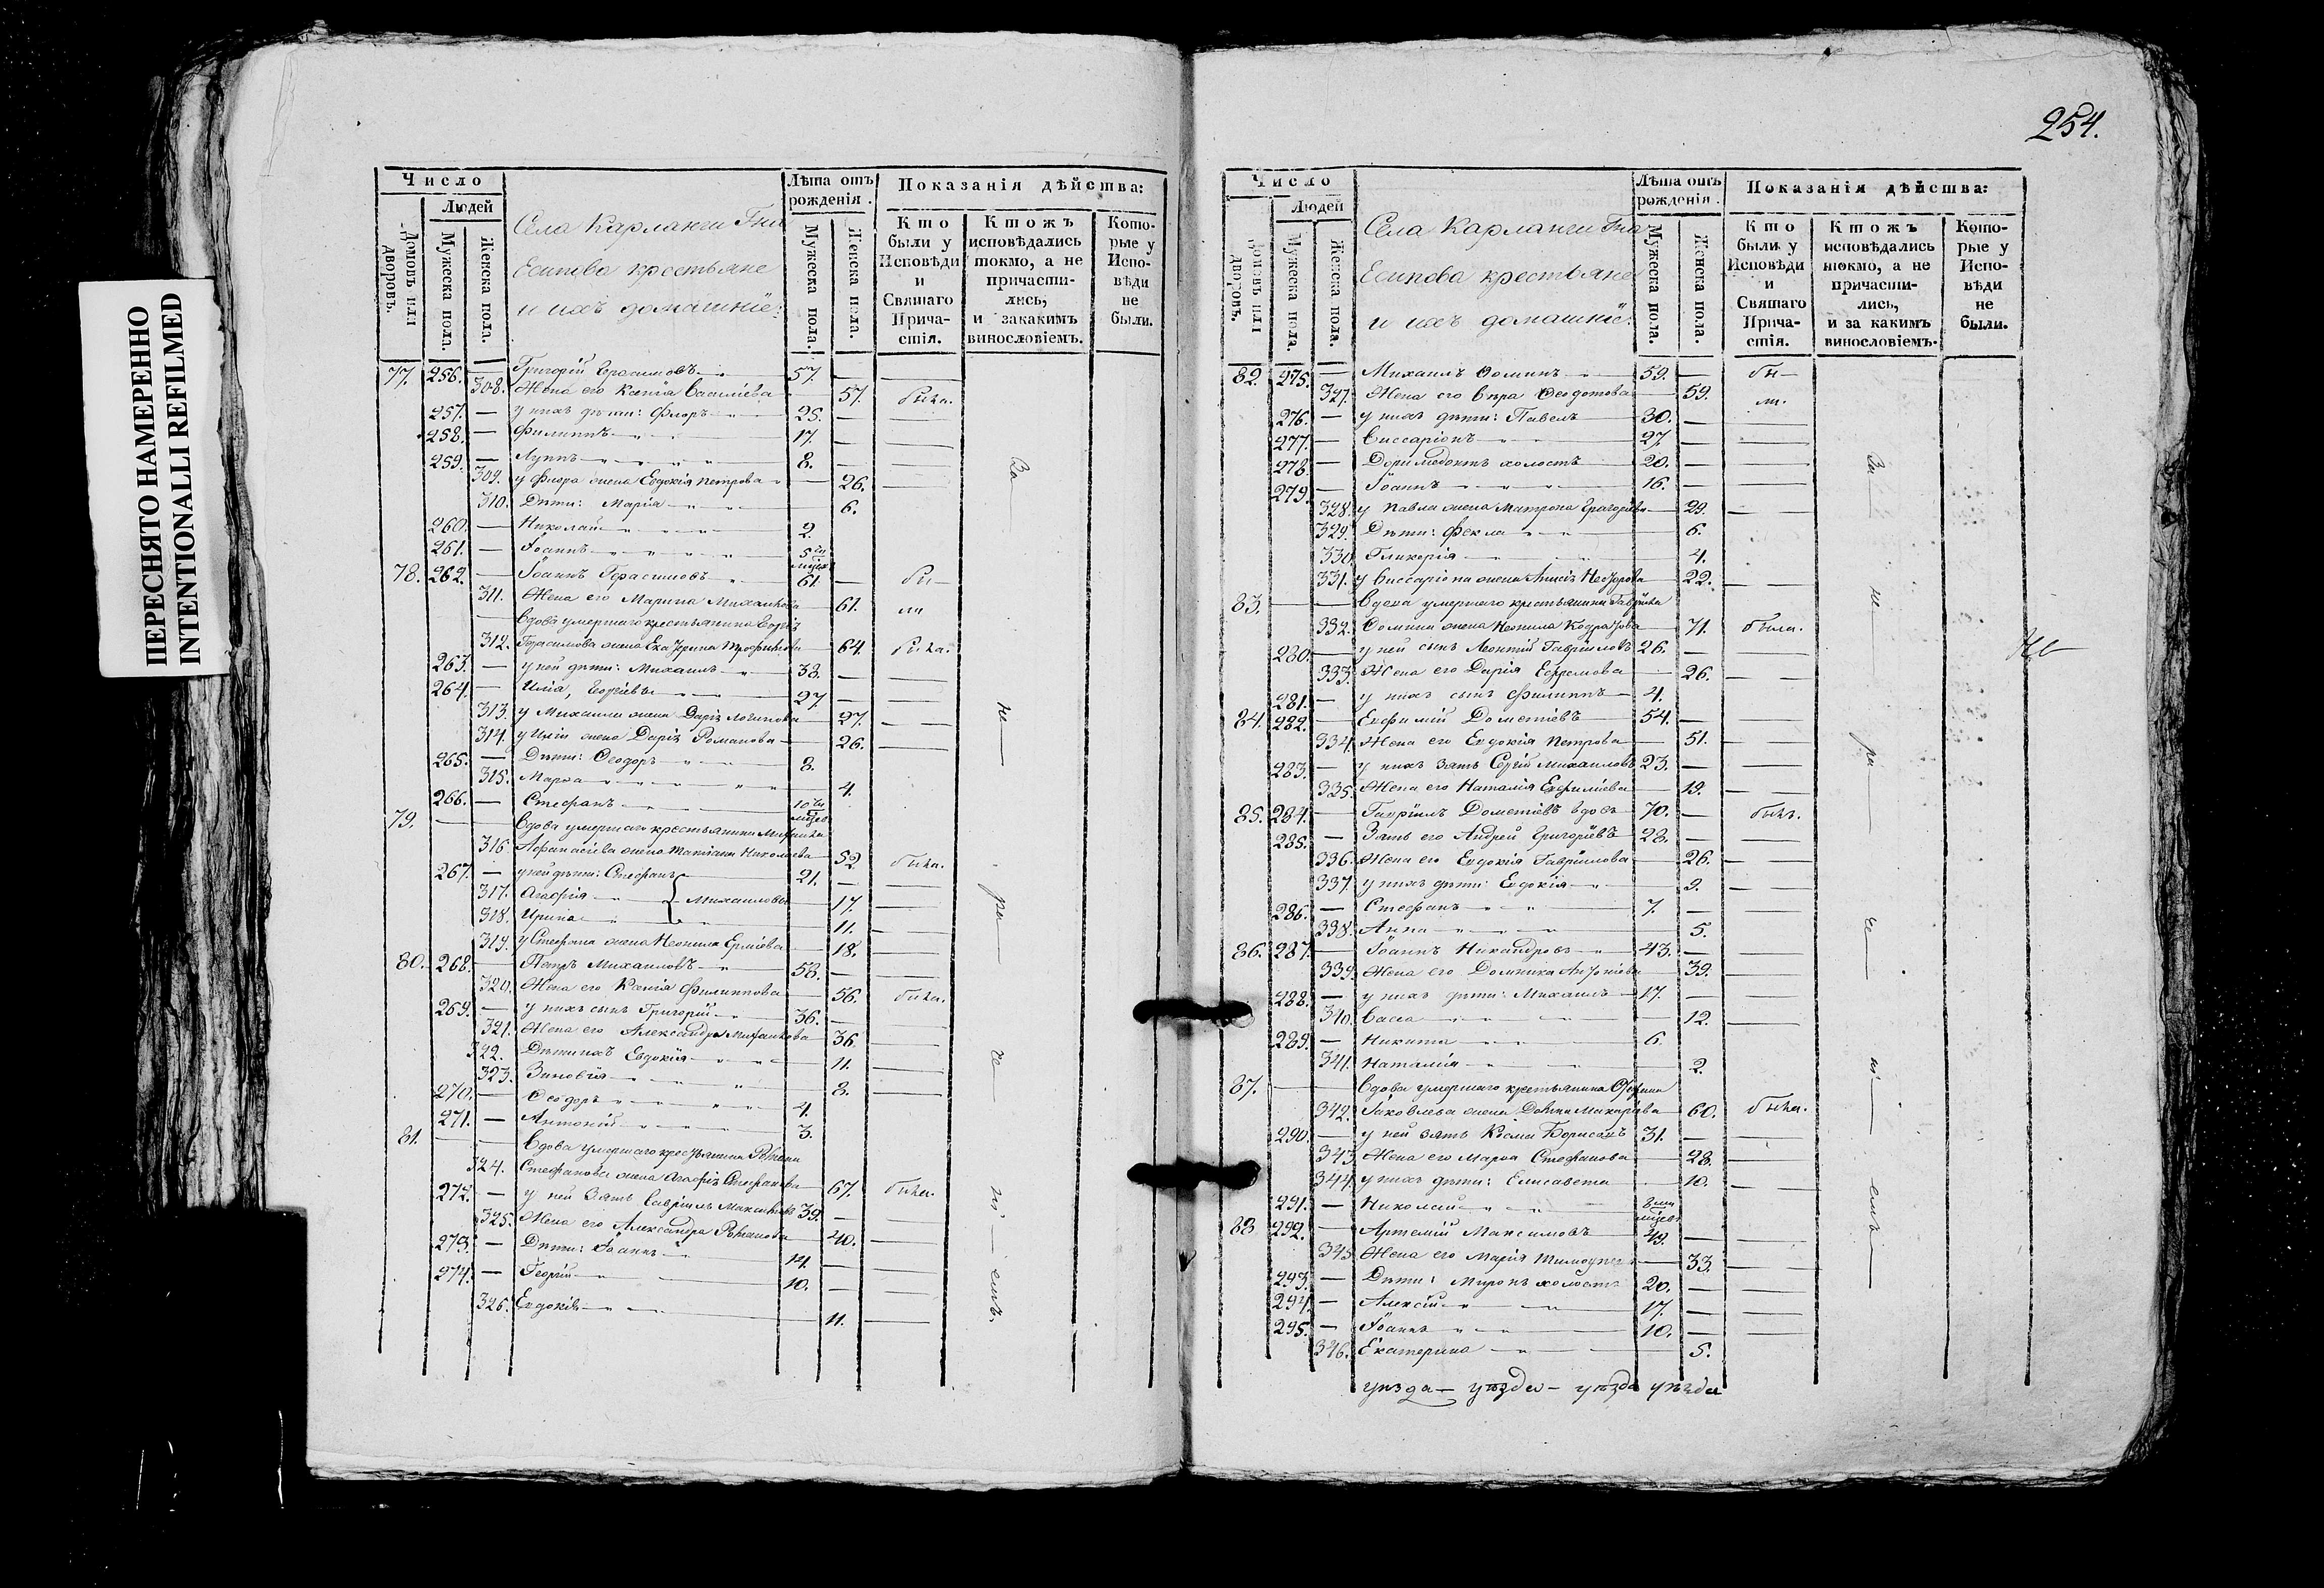 ПЕРЕСНЯТО НАМЕРЕННО
INTENTIONALLI REFILMED
Число
Людей
Домовъ или дворовъ.
Мужеска пола.
Женска пола.
Села Карланги Гна
Есипова крестьяне
и ихъ домашнїе:
Лѣта отъ рожденія.
Мужеска пола.
Женска пола.
Показанія дѣйства:
Кто были у Исповѣди и Святаго Прича-стія.
Ктожъ исповѣдались токмо, а не причасти-лись, и закакимъ винословіемъ.
Кото-рые у Испо-вѣди не были.
77. 256. — Григорій Герасимовъ 57. —
308. Жена его Ксенія Василіева — 57. была.
257. — у нихъ дѣти: Флоръ 25. —
258. — Филиппъ 17. —
259. — Луппъ 8. —
309. у Флора жена Евдокія Петрова — 26.
310. Дѣти: Марія 6.
260. — Николай 2.
261. — Іоаннъ 5 ти мѣсяц
78. 262. — Іоаннъ Герасимовъ 61. — бы
311. Жена его Марина Михаилова — 61. ли
Вдова умершаго крестьянина Георгія
312. Герасимова жена Екатерина Трофимова — 64. была.
263. — у ней дѣти: Михаилъ 38. —
264. — Илія, Георгіевы 27. —
313. у Михаила жена Дарія Логинова — 27.
314. у Иліи жена Дарія Романова — 26.
265. — Дѣти: Ѳеодоръ 8.
315. Марѳа 4.
266. — Стефанъ 10 ти мѣсяц
79. — Вдова умершаго крестьянина Михаила
316. Афанасіева жена Татіана Николаева — 52. была.
267. — у ней дѣти: Стефанъ 21. —
317. Агафія } Михаиловы — 17.
318. Ирина 11.
319. у Стефана жена Неонила Ермиева — 18.
80. 268. — Петръ Михаиловъ 58. —
320. Жена его Ксенія Филиппова — 56. была.
269. — у нихъ сынъ Григорій 36. —
321. Жена его Александра Михаилова 36.
322. Дѣти ихъ Евдокія 11.
323. Зиновія 8.
270. — Ѳеодоръ 4.
271. — Антоній 3.
81. — Вдова умершаго крестьянина Романа
324. Стефанова жена Агафія Стефанова — 67. была.
272. — у ней зять Гавріилъ Максимовъ 39. —
325. Жена его Александра Романова 40.
273. — Дѣти: Іоаннъ 14. —
274. — Георгій 10. —
326. Евдокія 11.
За — не — ра — че — ні — емъ.
254.
Число
Людей
Домовъ или дворовъ.
Мужеска пола.
Женска пола.
Села Карланги Гна
Есипова крестьяне
и ихъ домашнїе:
Лѣта отъ рожденія.
Мужеска пола.
Женска пола.
Показанія дѣйства:
Кто были у Исповѣди и Святаго Прича-стія.
Ктожъ исповѣдались токмо, а не причасти-лись, и за какимъ винословіемъ.
Кото-рые у Испо-вѣди не были.
82. 275. — Михаилъ Ѳоминъ 59. — бы
327. Жена его Вѣра Ѳеодотова 59. ли.
276. — у нихъ дѣти: Павелъ 30. —
277. — Виссаріонъ 27. —
278. — Доримедонтъ холостъ 20. —
279. — Іоаннъ 16. —
328. у Павла жена Матрона Григоріева 29.
329. Дѣти: Фекла 6.
330. Гликерія 4.
331. у Виссаріона жена Анисія Ѳеодорова 22.
83. — Вдова умершаго крестьянина Гавріила
332. Ѳомина жена Неонила Кодратова 71. была.
280. — у ней сынъ Леонтій Гавріиловъ 26. —
333. Жена его Дарія Ефремова 26.
281. — у нихъ сынъ Филиппъ 4.
84. 282. — Евфимій Дометіевъ 54. —
334. Жена его Евдокія Петрова 51.
283. — у нихъ зять Сергій Михаиловъ 23. —
335. Жена его Наталія Евфиміева 19.
85. 284. — Гавріилъ Дометіевъ вдовъ 70. — былъ.
285. — Зять его Андрей Григоріевъ 28. —
336. Жена его Евдокія Гавріилова 26.
337. у нихъ дѣти: Евдокія 9.
286. — Стефанъ 7. —
338. Анна 5.
86. 287. — Іоаннъ Никандровъ 43. —
339. Жена его Домника Антоніева 39.
288. — у нихъ дѣти: Михаилъ 17. —
340. Васса 12.
289. — Никита 6.
341. Наталія 2.
87. — Вдова умершаго крестьянина Стефана
342. Іаковлева жена Домна Макаріева 60. была.
290. — у ней зять Козма Борисовъ 31. —
343. Жена его Марѳа Стефанова 28.
344. у нихъ дѣти: Елисавета 10.
291. — Николай 8 ми мѣсяц
88 292. — Артемій Максимовъ 49. —
345. Жена его Марія Тимоѳеева 33.
293. — Дѣти: Миронъ холостъ 20. —
294. — Алексій 17. —
295. — Іоаннъ 10. —
346. Екатерина 5.
За — не — ра — че — ні — емъ
уѣзда — уѣзда — уѣзда уѣзда